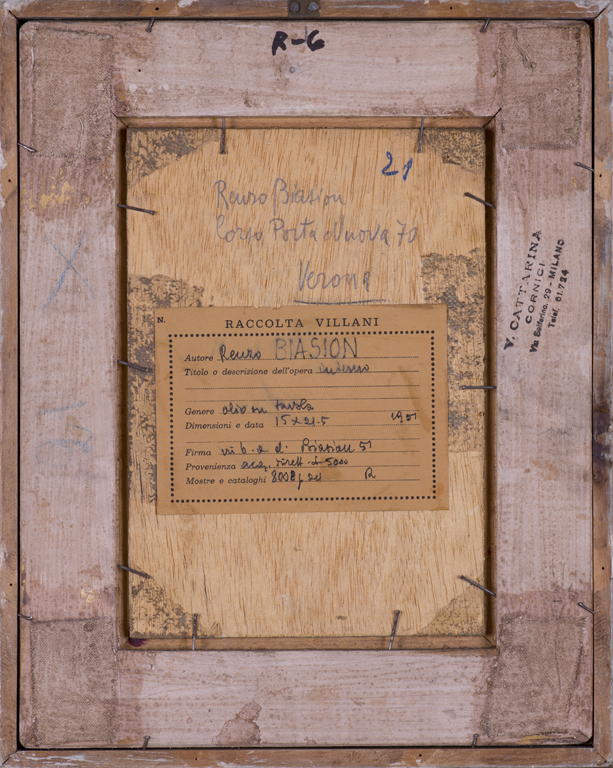 R-6
21
Renzo Biasion
Corso Porta Nuova 70
Verona
V. CATTARINA
CORNICI
Via Solferino, 29 - MILANO
Telef. 61.724
N.
RACCOLTA VILLANI
Autore Renzo BIASION
Titolo o descrizione dell'opera interno
Genere olio su tavola
Dimensioni e data 15 x 21.5 1951
Firma in b. a d. Biasion 51
Provenienza acq. dirett.
Mostre e cataloghi R